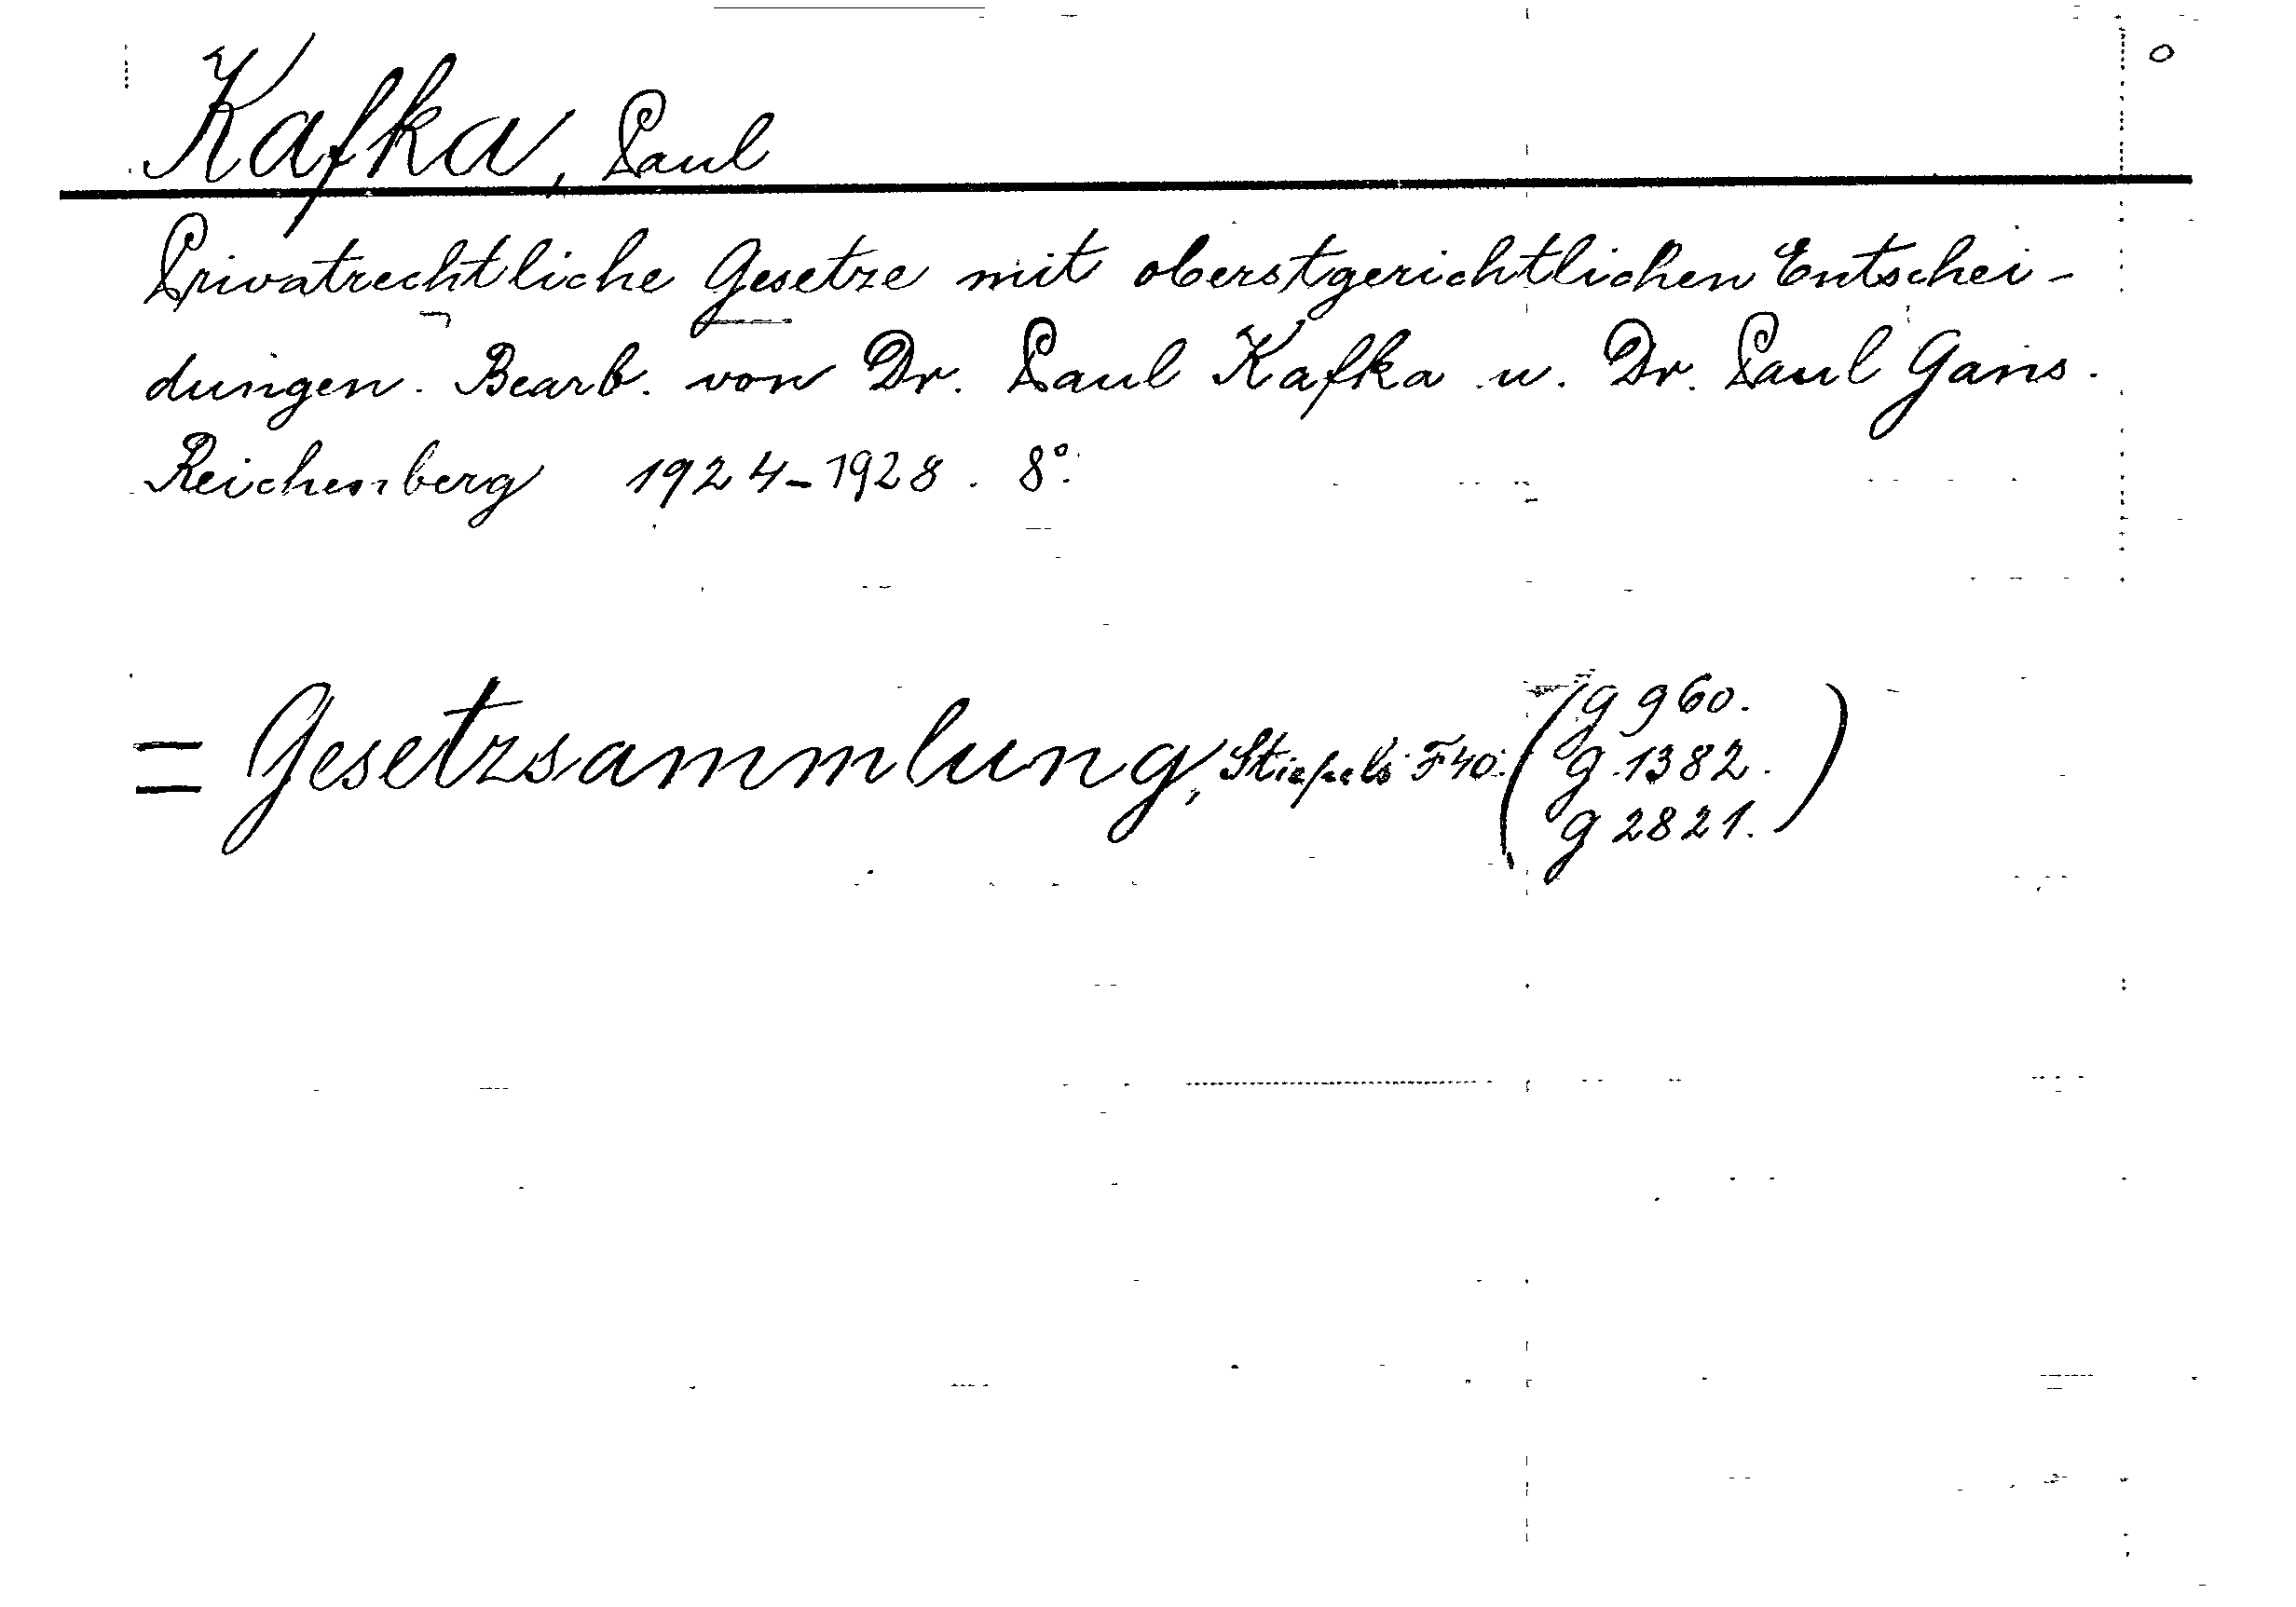 Kafka, Paul
Privatrechtliche Gesetze mit oberstgerichtlichen Entschei-
dungen. Bearb. von Dr. Paul Kafka u. Dr. Paul Gans.
Reichenberg 1924-1928. 8°.
= Gesetzsammlung, Stiepels F40. (g 960.
g 1382.
g 2821.)